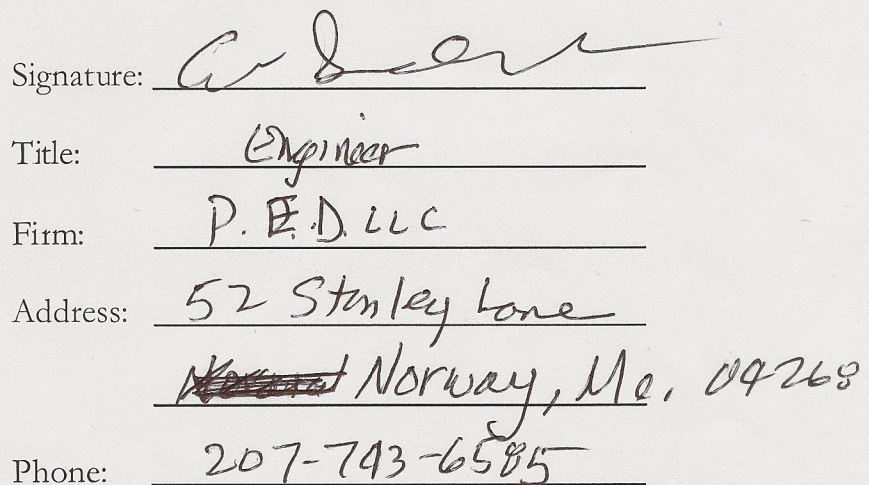 Signature:
Title: Engineer
Firm: P.E.D. LLC
Address: 52 Stanley Lane
Norway, Me. 04268
Phone: 207-743-6585